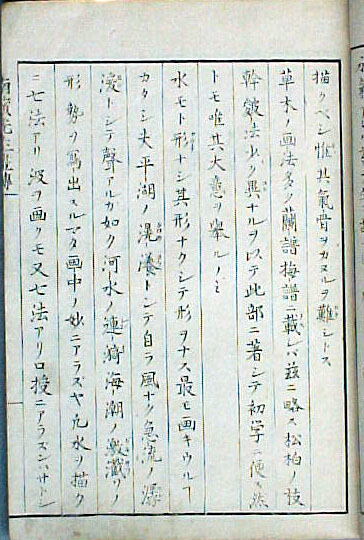 描クベシ惟其氣骨ヲカヌルヲ難シトス
草木ノ画法多ク蘭譜梅譜ニ載レバ茲ニ略ス松柏ノ枝
幹皴法少ク異ナルヲ以テ此部ニ著シテ初学ニ便ス然
トモ唯其大意ヲ擧ルノミ
水モト形ナシ其形ナクシテ形ヲナス最モ画キウルヿ
カタシ夫平湖ノ滉瀁トシテ自ラ風ナク急流ノ潺
湲トシテ聲アルガ如ク河水ノ連漪海潮ノ激灔ソノ
形勢ヲ寫出スルマタ画中ノ妙ニアラズヤ凡水ヲ描ク
ニ七法アリ波ヲ画クモ又七法アリ口授ニアラズンバサトシ